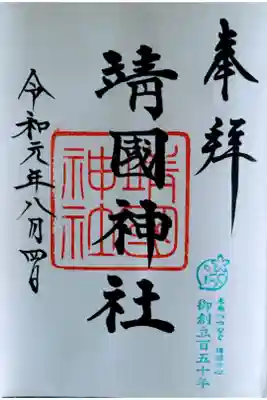 奉拝
靖國神社
靖國
神社
令和元年八月四日
御創立百五十年